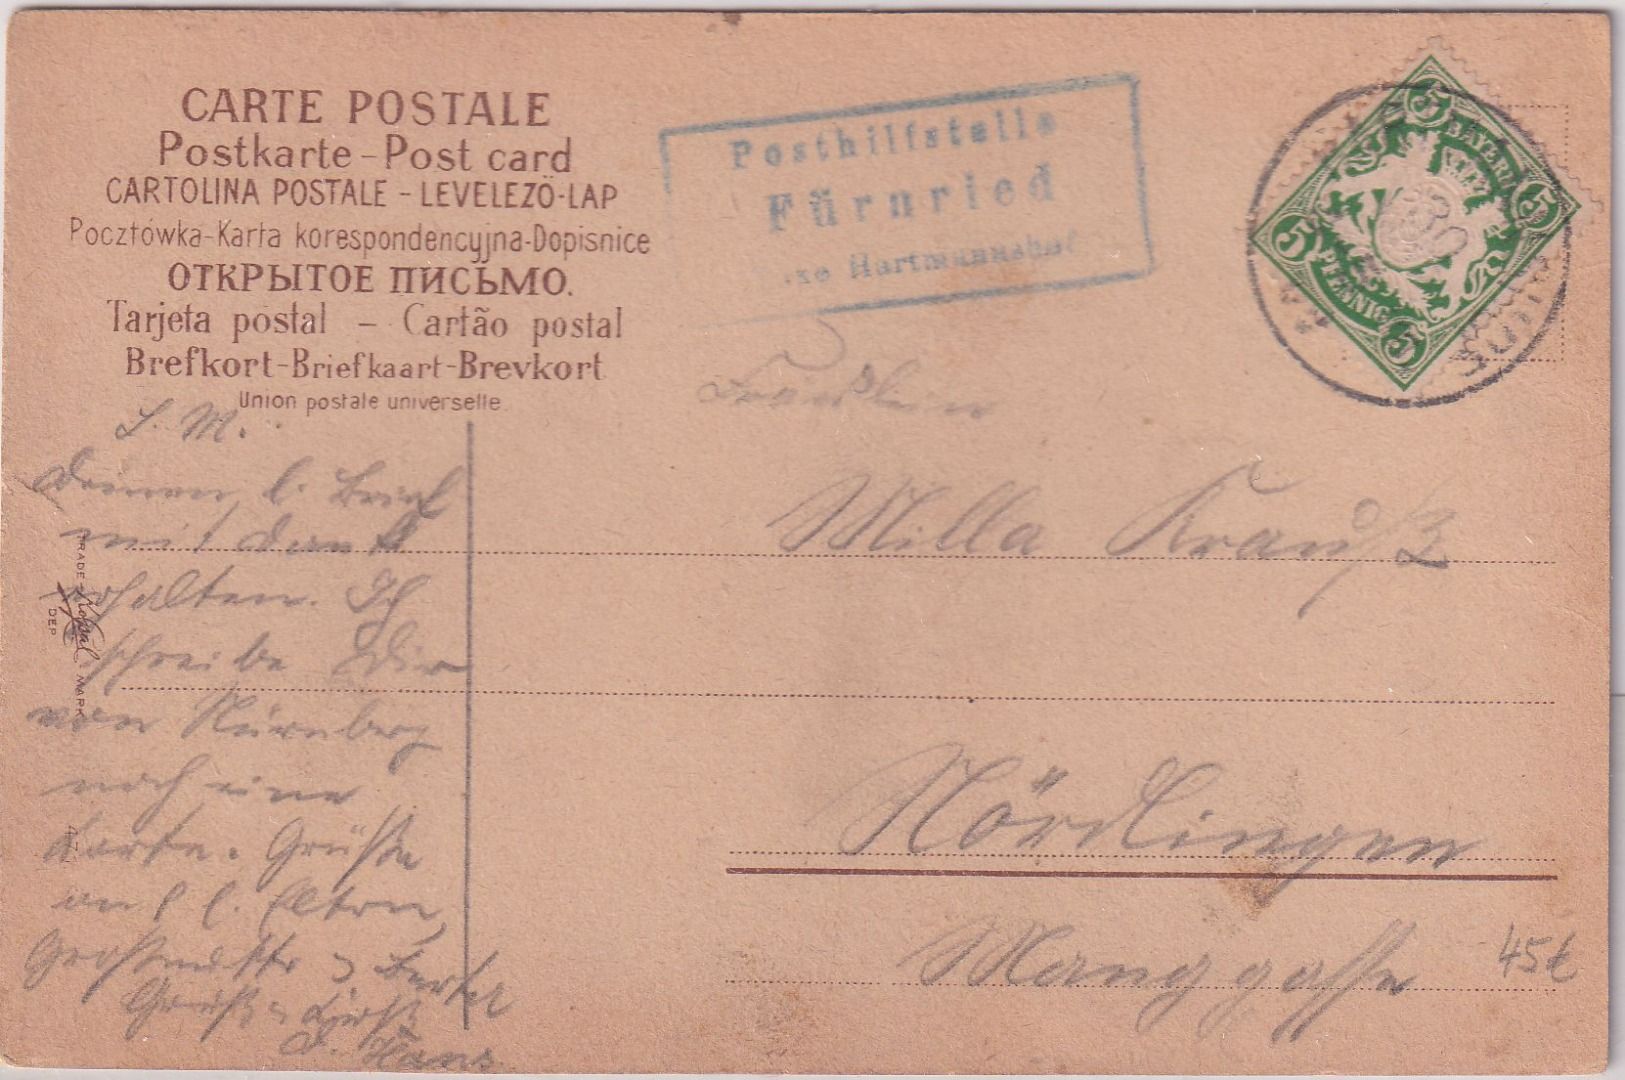 CARTE POSTALE
Postkarte – Post card
CARTOLINA POSTALE – LEVELEZÖ-LAP
Pocztówka-Karta korespondencyjna-Dopisnice
ОТКРЫТОЕ ПИСЬМО.
Tarjeta postal – Cartão postal
Brefkort-Briefkaart-Brevkort
Union postale universelle
Posthilfstelle
Fürnried
Taxe Hartmannshof
5 BAYERN 5
5 PFENNIG 5
Fräulein
Milla Krauß
Nördlingen
Manggasse
45€
L. M.
Deinen l. Brief
mit Dank
erhalten. Ich
schreibe Dir
von Nürnberg
noch eine
Karte. Grüße
an l. Eltern,
Großmutter
Gruß u. Kuß
Hans
TRADE MARK
DEP